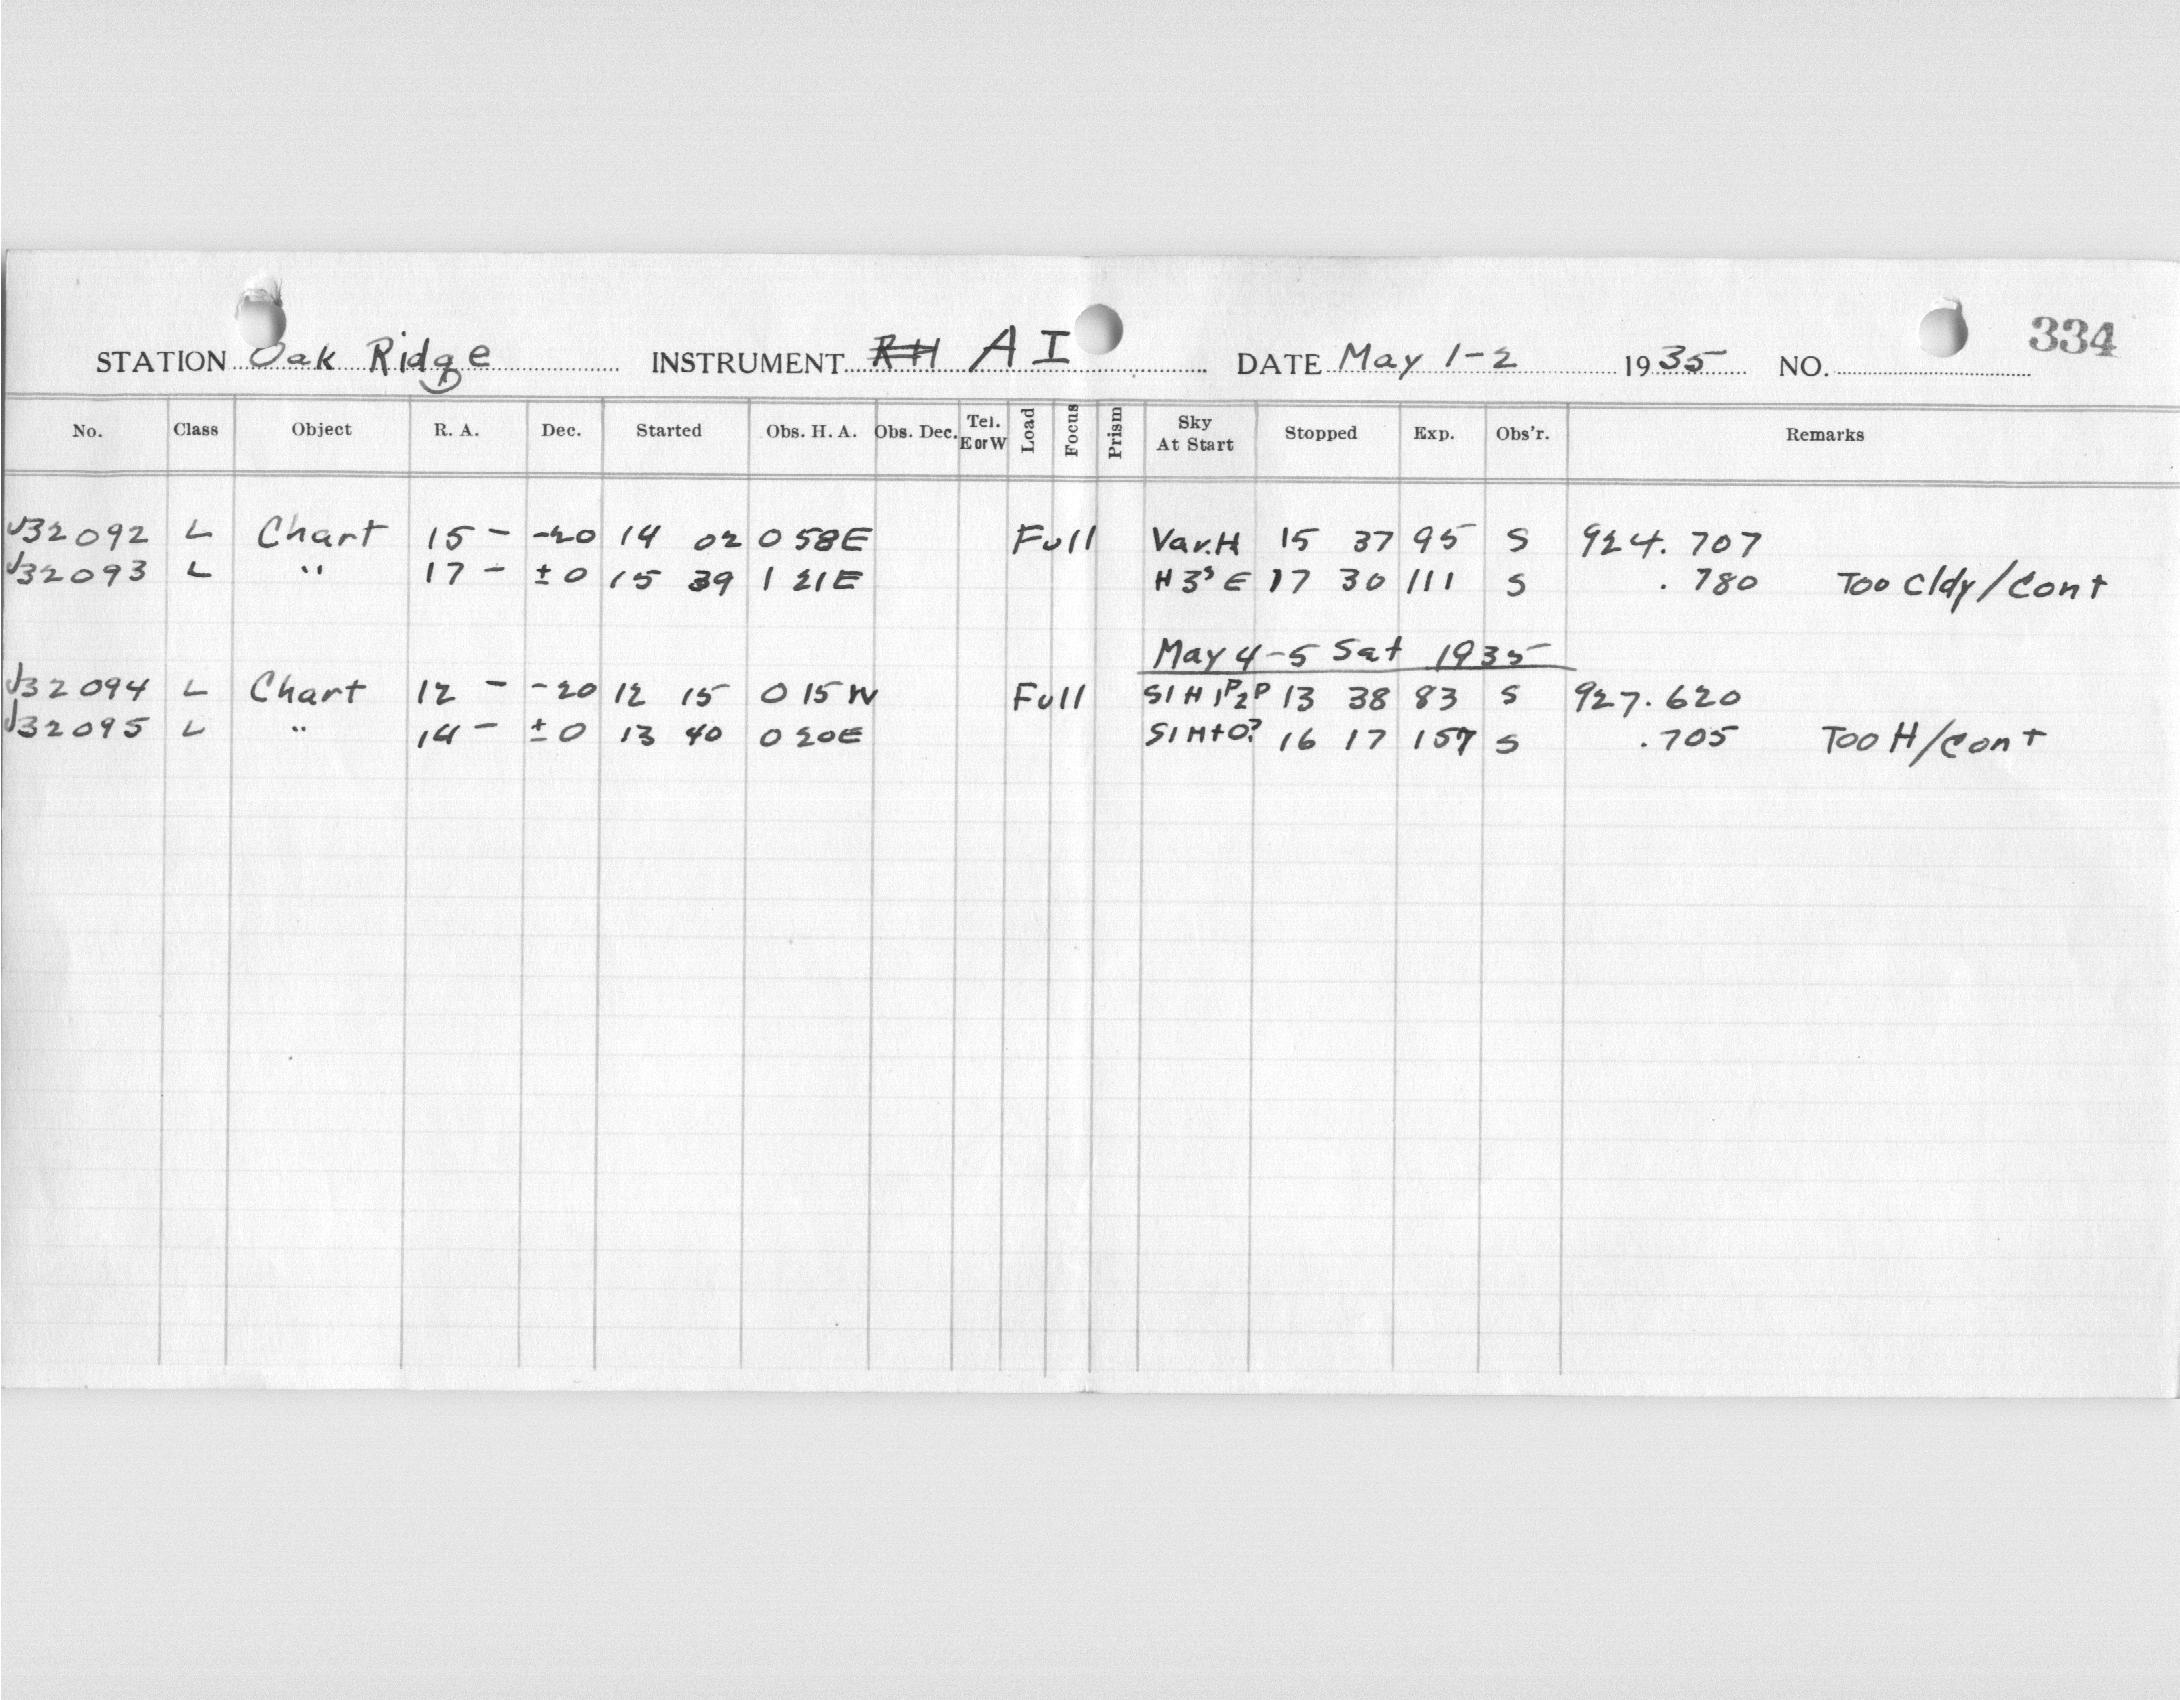 334
STATION Oak Ridge INSTRUMENT RH AI DATE May 1-2 1935 NO.
No. Class Object R. A. Dec. Started Obs. H. A. Obs. Dec. Tel. E or W Load Focus Prism Sky At Start Stopped Exp. Obs'r. Remarks
√32092 L Chart 15 - -20 14 02 0 58E Full Var.H 15 37 95 S 924.707
√32093 L " 17 - ±0 15 39 1 21E H 3ˢ E 17 30 111 S .780 Too Cldy/Cont
May 4-5 Sat 1935
√32094 L Chart 12 - -20 12 15 0 15W Full Sl H 1ᴾ2ᴾ 13 38 83 S 927.620
√32095 L " 14 - ±0 13 40 0 20E Sl H+0? 16 17 157 S .705 Too H/Cont